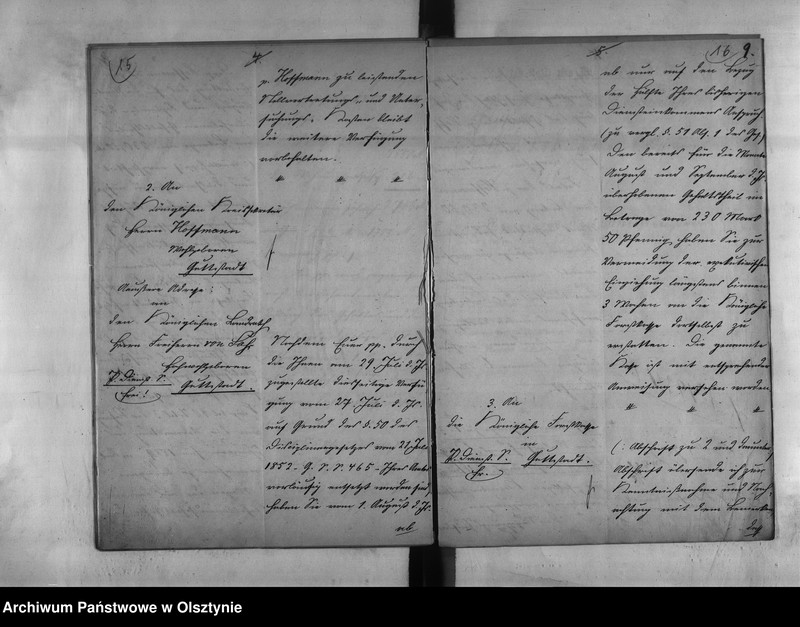 15
4.
p. Hoffmann zu leistenden
Stellvertretungs- und Unter-
suchungs-Kosten bleibt
die weitere Verfügung
vorbehalten.
2. An
den Königlichen Kreis
Herrn Hoffmann
Wohlgeboren
Guttstadt
Aeußere Adresse:
an
den Königlichen Landrath
Herrn Freiherrn von
Hochwohlgeboren
Guttstadt.
P. Dienst S.
frei!
Nachdem Euer pp. durch
die Ihnen am 29. Juli d. Js.
zugestellte diesseitige Verfü-
gung vom 27. Juli d. Js.
auf Grund des §. 50 des
Disciplinargesetzes vom 21. Juli
1852. G. S. S. 465 - Ihres Amtes
vorläufig entsetzt worden sind,
haben Sie vom 1. August d. Js.
ab
5.
16
9.
ab nur auf den Bezug
der Hälfte Ihres bisherigen
Diensteinkommens Anspruch
(zu vergl. §. 51 Abs. 1 des Ges.)
Den bereits für die Monate
August und September d. Js.
erhobenen Gehaltstheil im
Betrage von 230 Mark
50 Pfennig, haben Sie zur
Vermeidung der exekutivischen
Einziehung längstens binnen
3 Wochen an die Königliche
Forstkasse daselbst zu
erstatten. Die genannte
Kasse ist mit entsprechender
Anweisung versehen worden
3. An
die Königliche Forstkasse
in
Guttstadt.
P. Dienst. S.
fr.
(: Abschrift zu 2
Abschrift übersende ich zur
Kenntnißnahme und Nach-
achtung mit dem Bemerken
daß
Archiwum Państwowe w Olsztynie